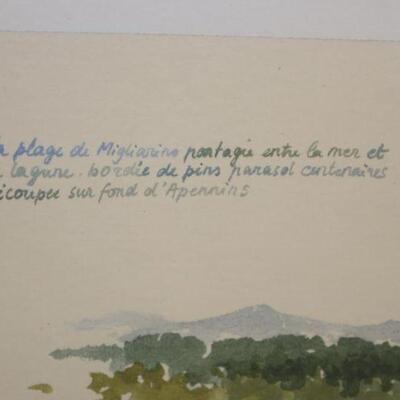 a plage de Migliarino partagée entre la mer et
lagune. bordée de pins parasol centenaires
écoupée sur fond d'Apennins